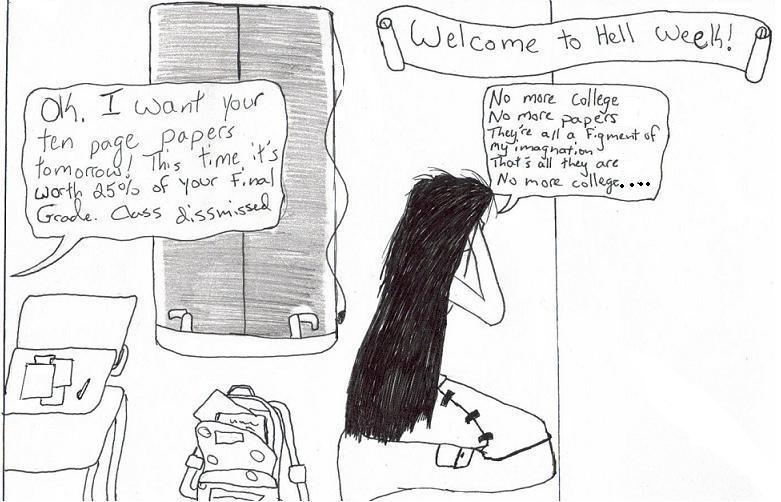 Welcome to Hell Week!
Ok. I want your
ten page papers
tomorrow! This time it's
worth 25% of your Final
Grade. Class dissmissed
No more college
No more papers
They're all a Figment of
my imagnation
That's all they are
No more college....